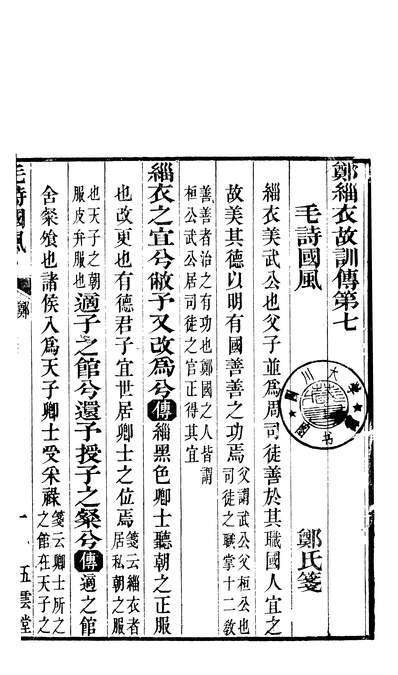 鄭緇衣故訓傳第七
毛詩國風
鄭氏箋
緇衣美武公也父子並爲周司徒善於其職國人宜之
故美其德以明有國善善之功焉
父謂武公父桓公也
司徒之職掌十二教
善善者治之有功也鄭國之人皆謂
桓公武公居司徒之官正得其宜
緇衣之宜兮敝予又改爲兮傳緇黑色卿士聽朝之正服
也改更也有德君子宜世居卿士之位焉
箋云緇衣者
居私朝之服
也天子之朝
服皮弁服也
適子之館兮還予授子之粲兮傳適之館
舍粲飧也諸侯入爲天子卿士受采祿
箋云卿士所之
之館在天子之
毛詩國風
鄭
一
五雲堂